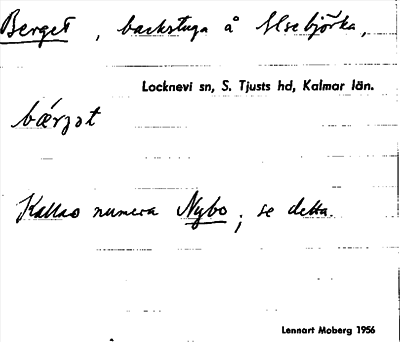 Berget, backstuga å Ulsebjörka,
Locknevi sn, S. Tjusts hd, Kalmar län.
bǽrzət
Kallas numera Nybo; se detta.
Lennart Moberg 1956